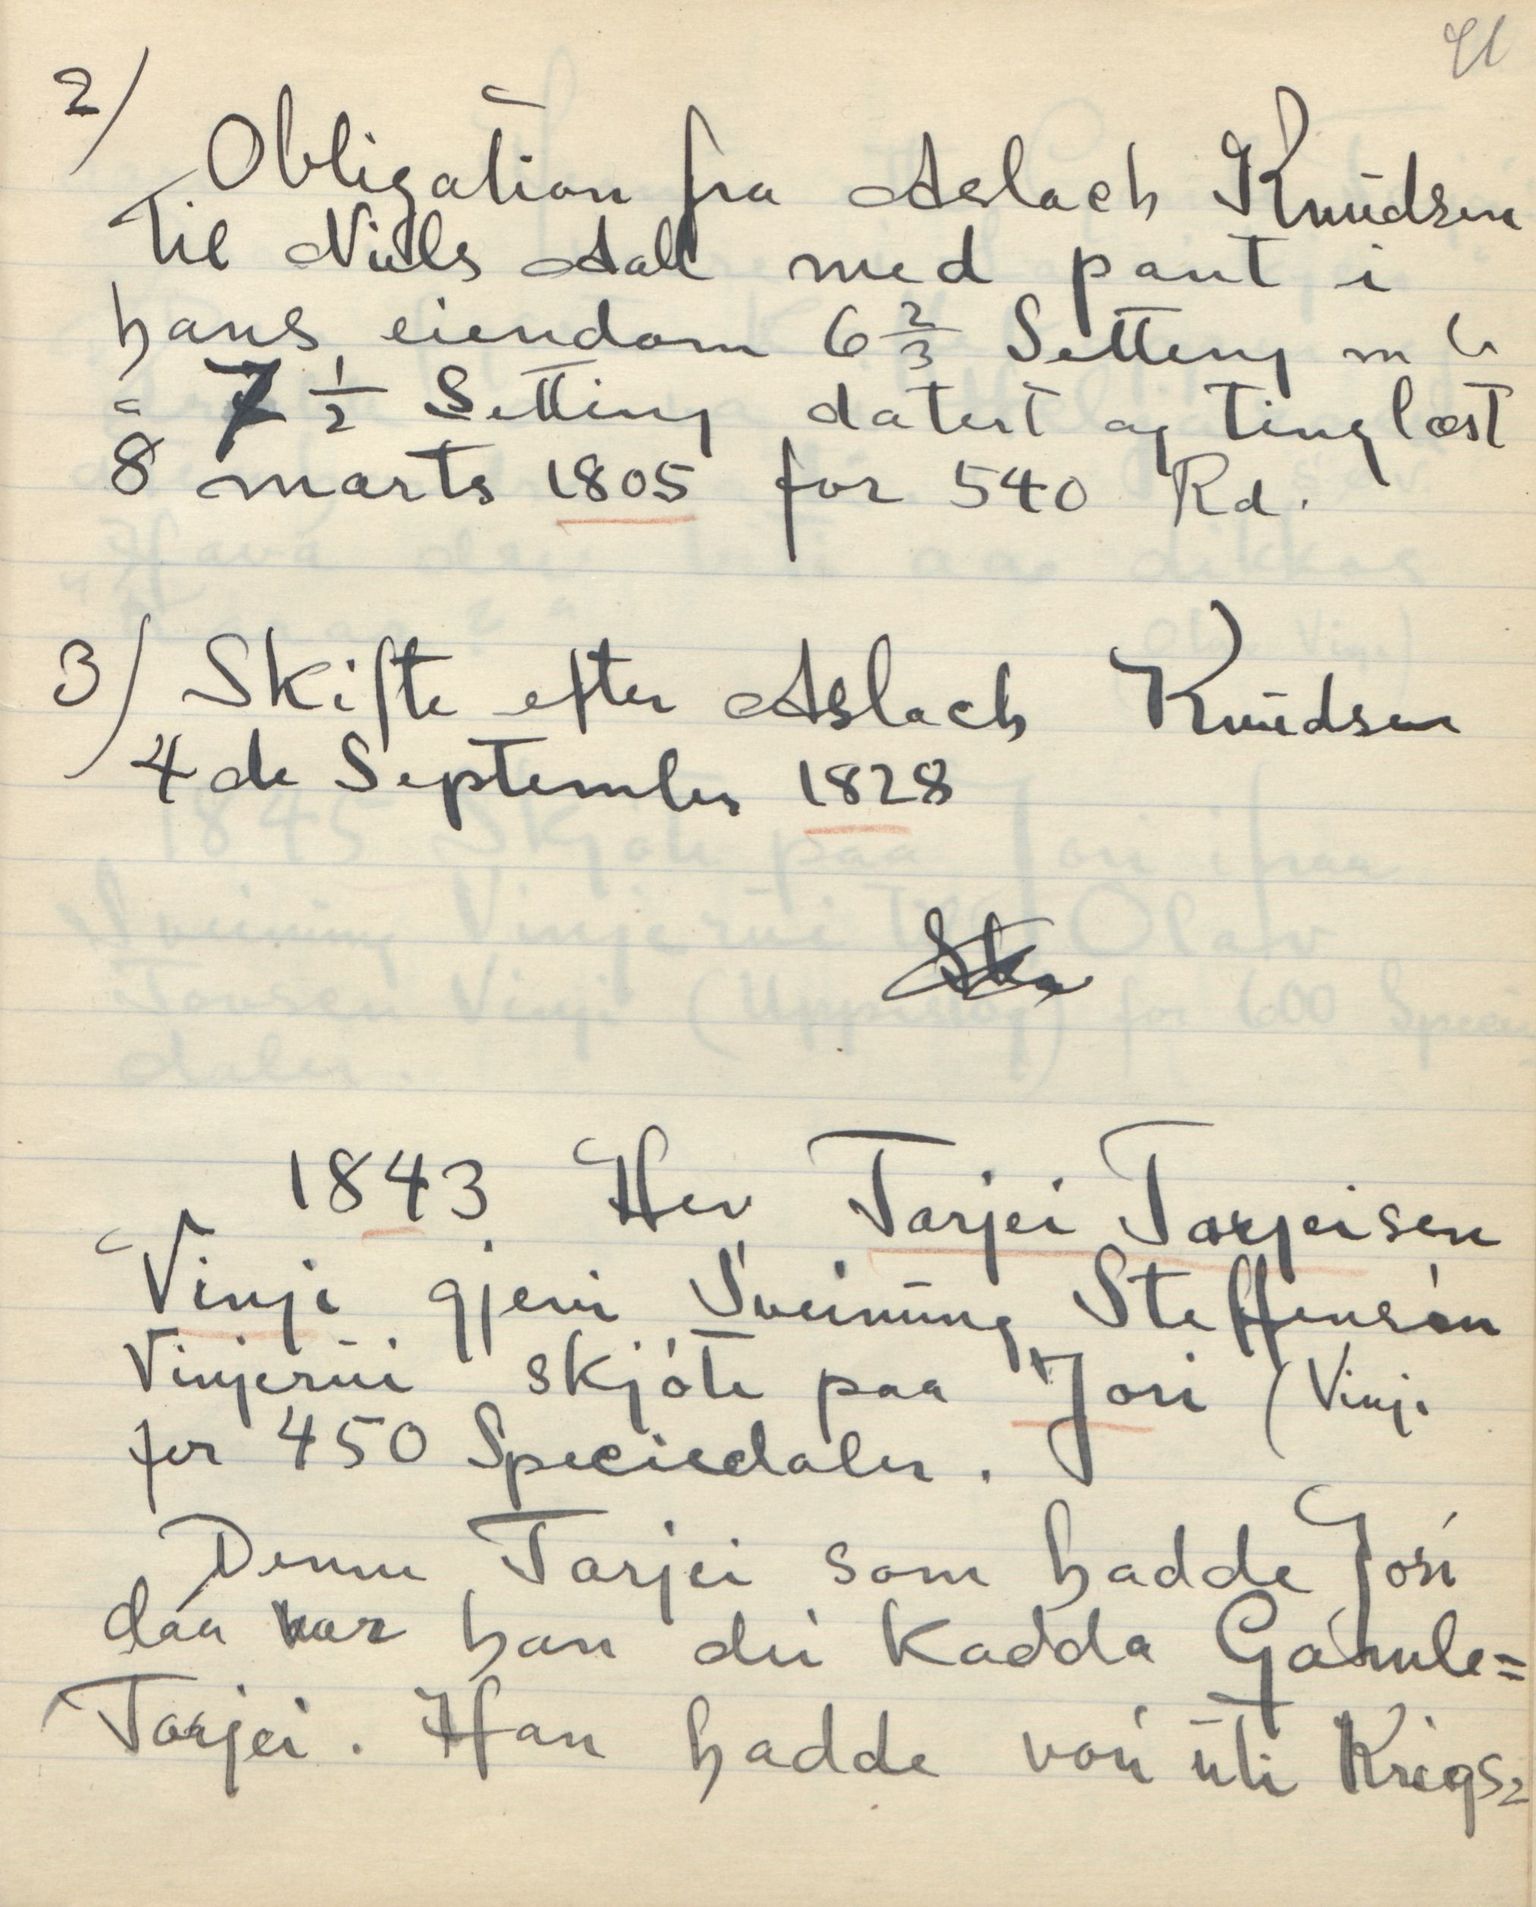 91
2/
Obligation fra Aslach Knudsen
til Niels Aall med pant i
hans eiendom 6 2/3 Setting m
a 7 1/2 Setting datert og tinglæst
8 marts 1805 for 540 Rd.
3/ Skifte efter Aslach Knudsen
4 de September 1828
1843. Hev Tarjei Tarjeisen
Vinje gjevi Sveinung Steffensøn
Vinjerui skjøte paa Jori (Vinje
for 450 Speciedaler.
Denne Tarjei som hadde Jori
daa var han dei kadda Gamle=
Tarjei. Han hadde vori uti Krigs=